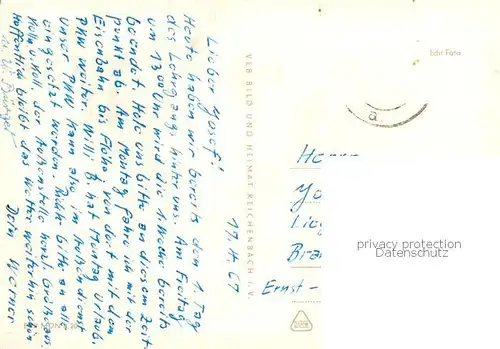 17.4.67
Lieber Josef!
Heute haben wir bereits den 1. Tag
des Lehrgangs hinter uns. Am Freitag
um 13⁰⁰ Uhr wird die 1. Woche bereits
beendet. Hole uns bitte an diesem Zeit-
punkt ab. Am Montag fahre ich mit der
Eisenbahn bis Flöha, von dort mit dem
PKW weiter. Willi B. hat Montag Urlaub.
Unser PKW kann also im Außendienst
eingesetzt werden. Richte bitte an alle
Kolln. u. Koll. der Außenstelle herzl. Grüße aus.
Hoffentlich bleibt das Wetter weiterhin schön
Dein Werner
VEB BILD UND HEIMAT REICHENBACH I. V.
Echt Foto
a
Herrn
Jo
Bra
Ernst-
privacy protection
Datenschutz